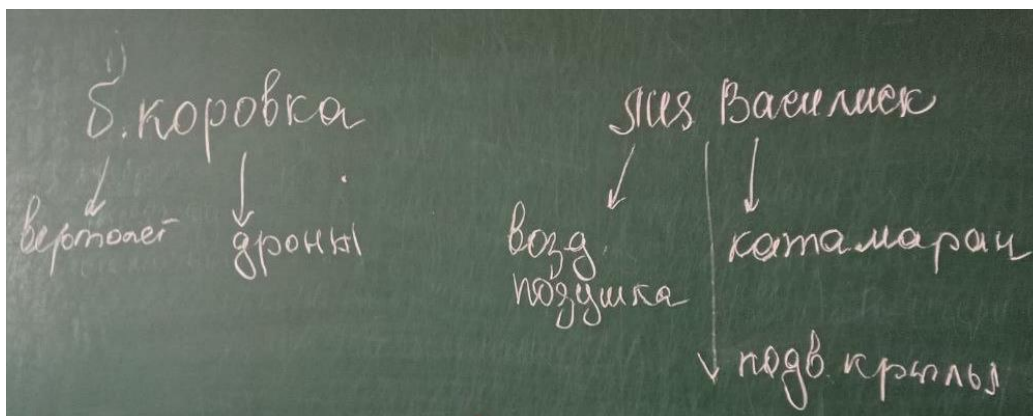 1)
б. коровка
вертолет
дроны
ящ Василиск
возд.
подушка
катамаран
подв. крылья